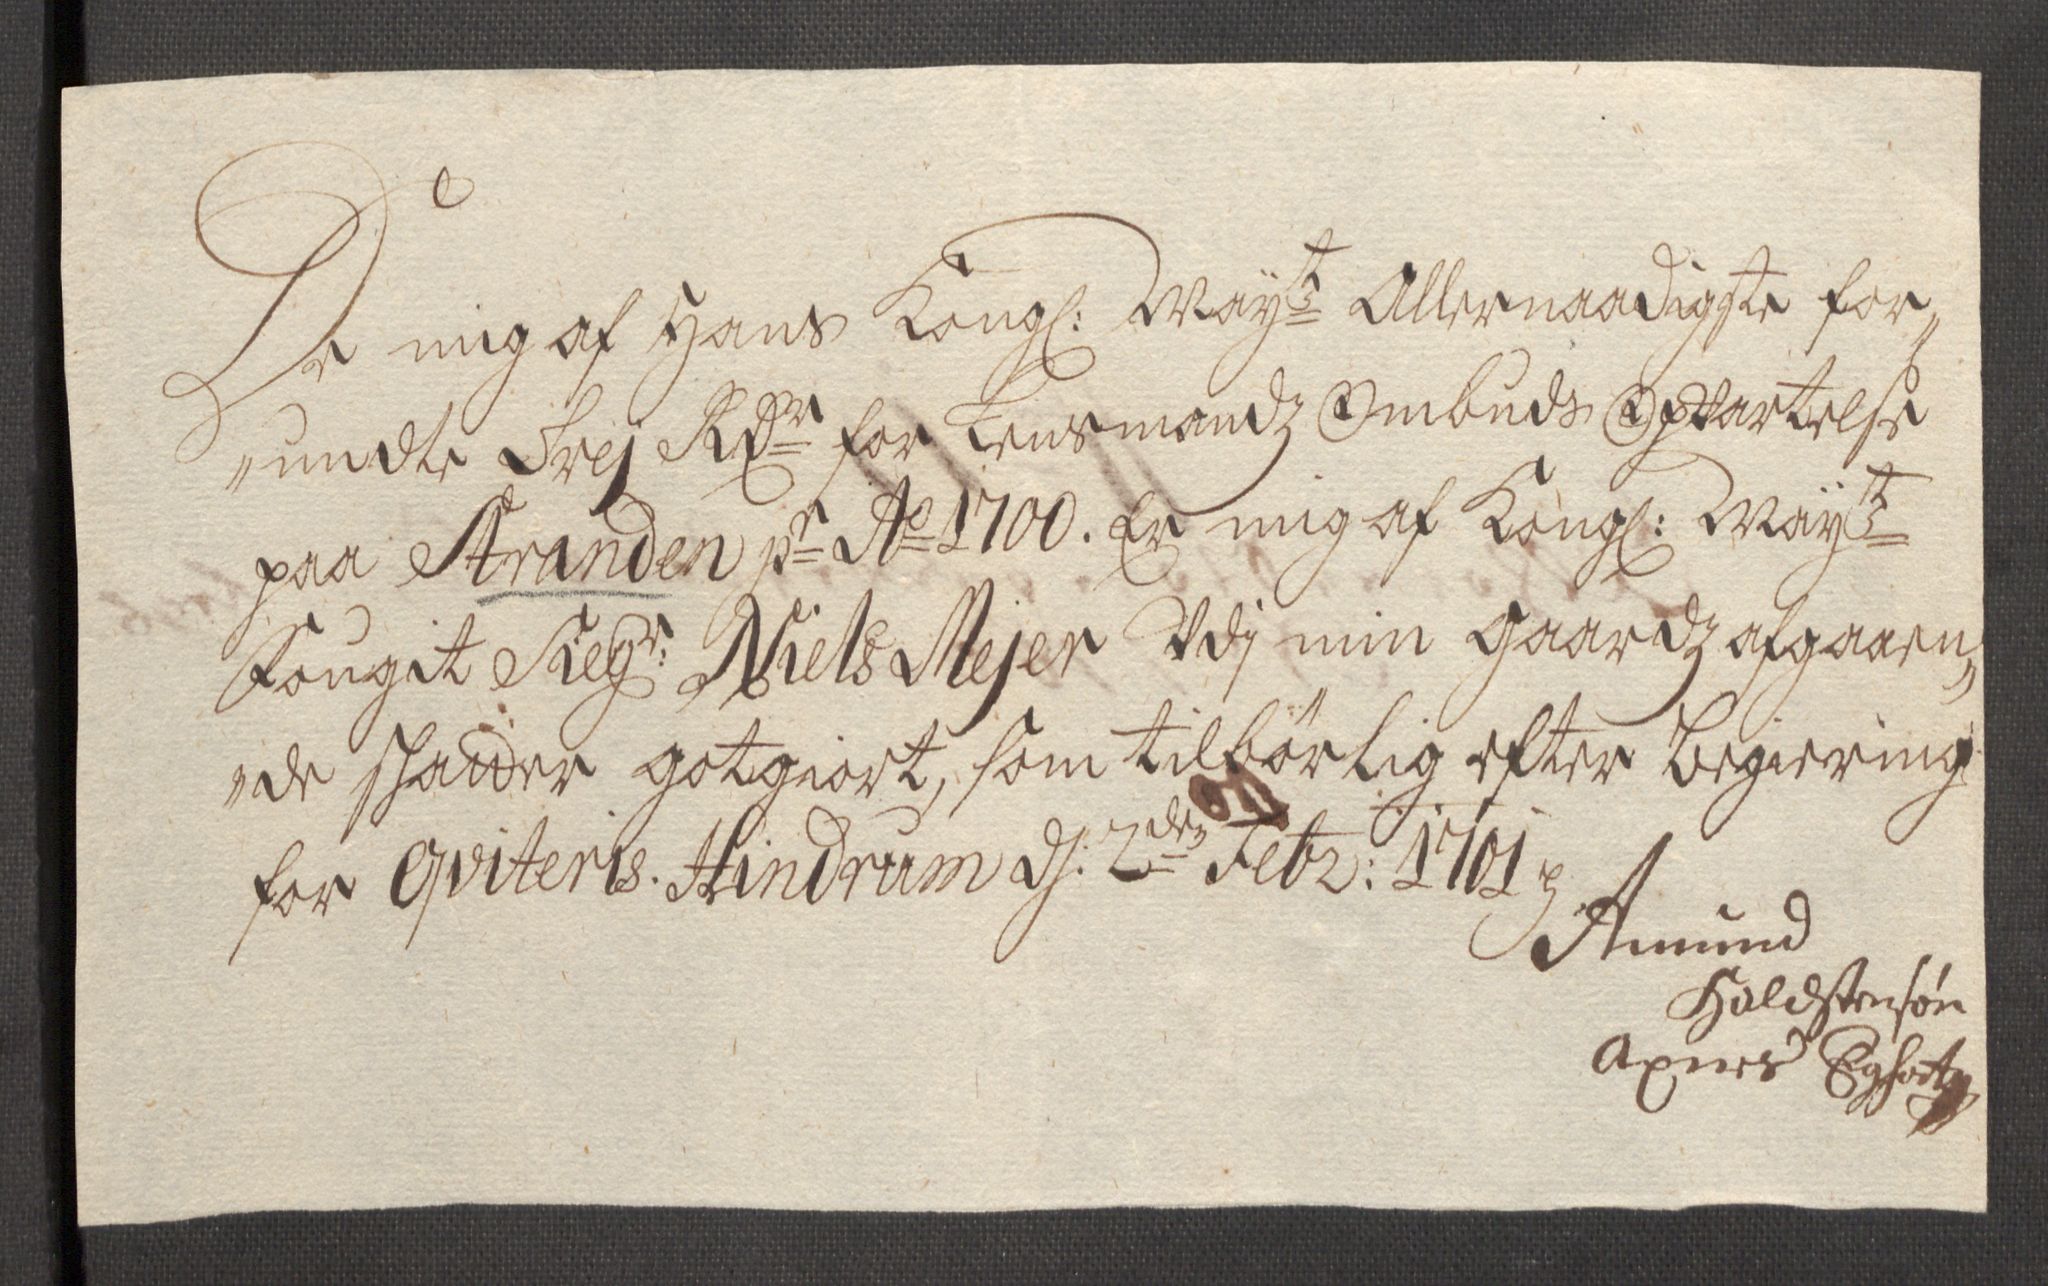 De mig af Hans Kongl: Maÿtz Allernaadigste for„
„undte Trej Rdr for Lensmandz Ombuds Opvartelse
paa Stranden pr Ao 1700. Er mig af Kongl: Maÿtz
Fougit Siegr: Niels Mejer Udj min gaardz afgaaen„
„de schatter gotgiort, som tilbörlig efter begiering
for Qviteris. Hindrum dj: 2den Febr: 1701
Amund
Haldstensøn